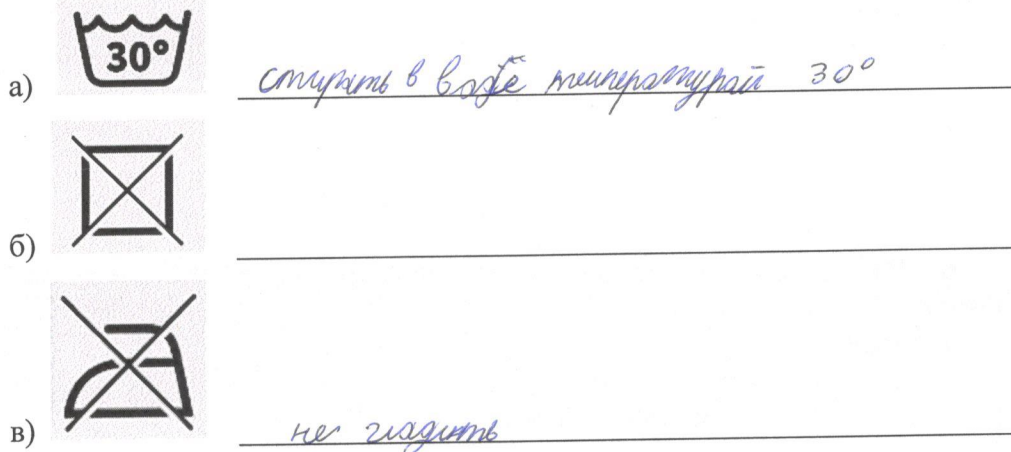 30°
а) стирать в воде температурай 30°
б)
в) не гладить